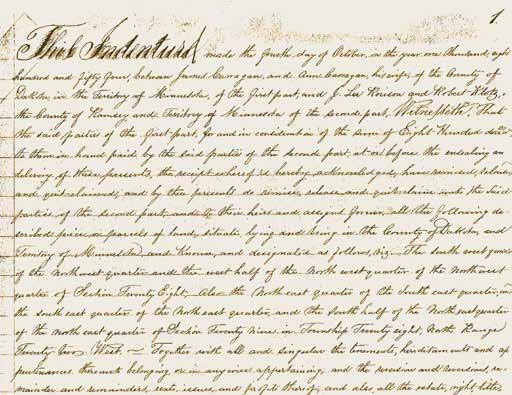 1.
This Indenture made the fourth day of October, in the year one thousand, eight
hundred and fifty four, between James and Ann his wife, of the County of
Dakota, in the Territory of Minnesota, of the first part, and J. and Robert of
the County of Ramsey and Territory of Minnesota of the second part, Witnesseth, That
the said parties of the first part, for and in consideration of the sum of Eight Hundred
to them in hand paid by the said parties of the second part, at or before the ensealing an
delivery of these presents, the receipt whereof is hereby acknowledged, have remised,
and quit claimed, and by these presents do remise, release and quit claim unto the said
parties of the second part, and to their heirs and assigns forever, all the following de-
scribed piece or parcels of land, situate lying and being in the County of Dakota, and
Territory of Minnesota, and known, and designated as follows, viz. The south west
of the north west quarter and the west half of the North west quarter of the north east
quarter of Section Twenty Eight, Also the North east quarter of the South east quarter, an
the south east quarter of the North east quarter, and the south half of the North east quarter
of the north east quarter of Section Twenty nine in Township Twenty eight, North Range
Twenty two West. Together with all and singular the tenements, hereditaments and ap
purtenances thereunto belonging or in any wise appertaining, and the reversion and reversions, re-
mainder and remainders, rents, issues, and profits thereof; and also, all the estate, right, title,